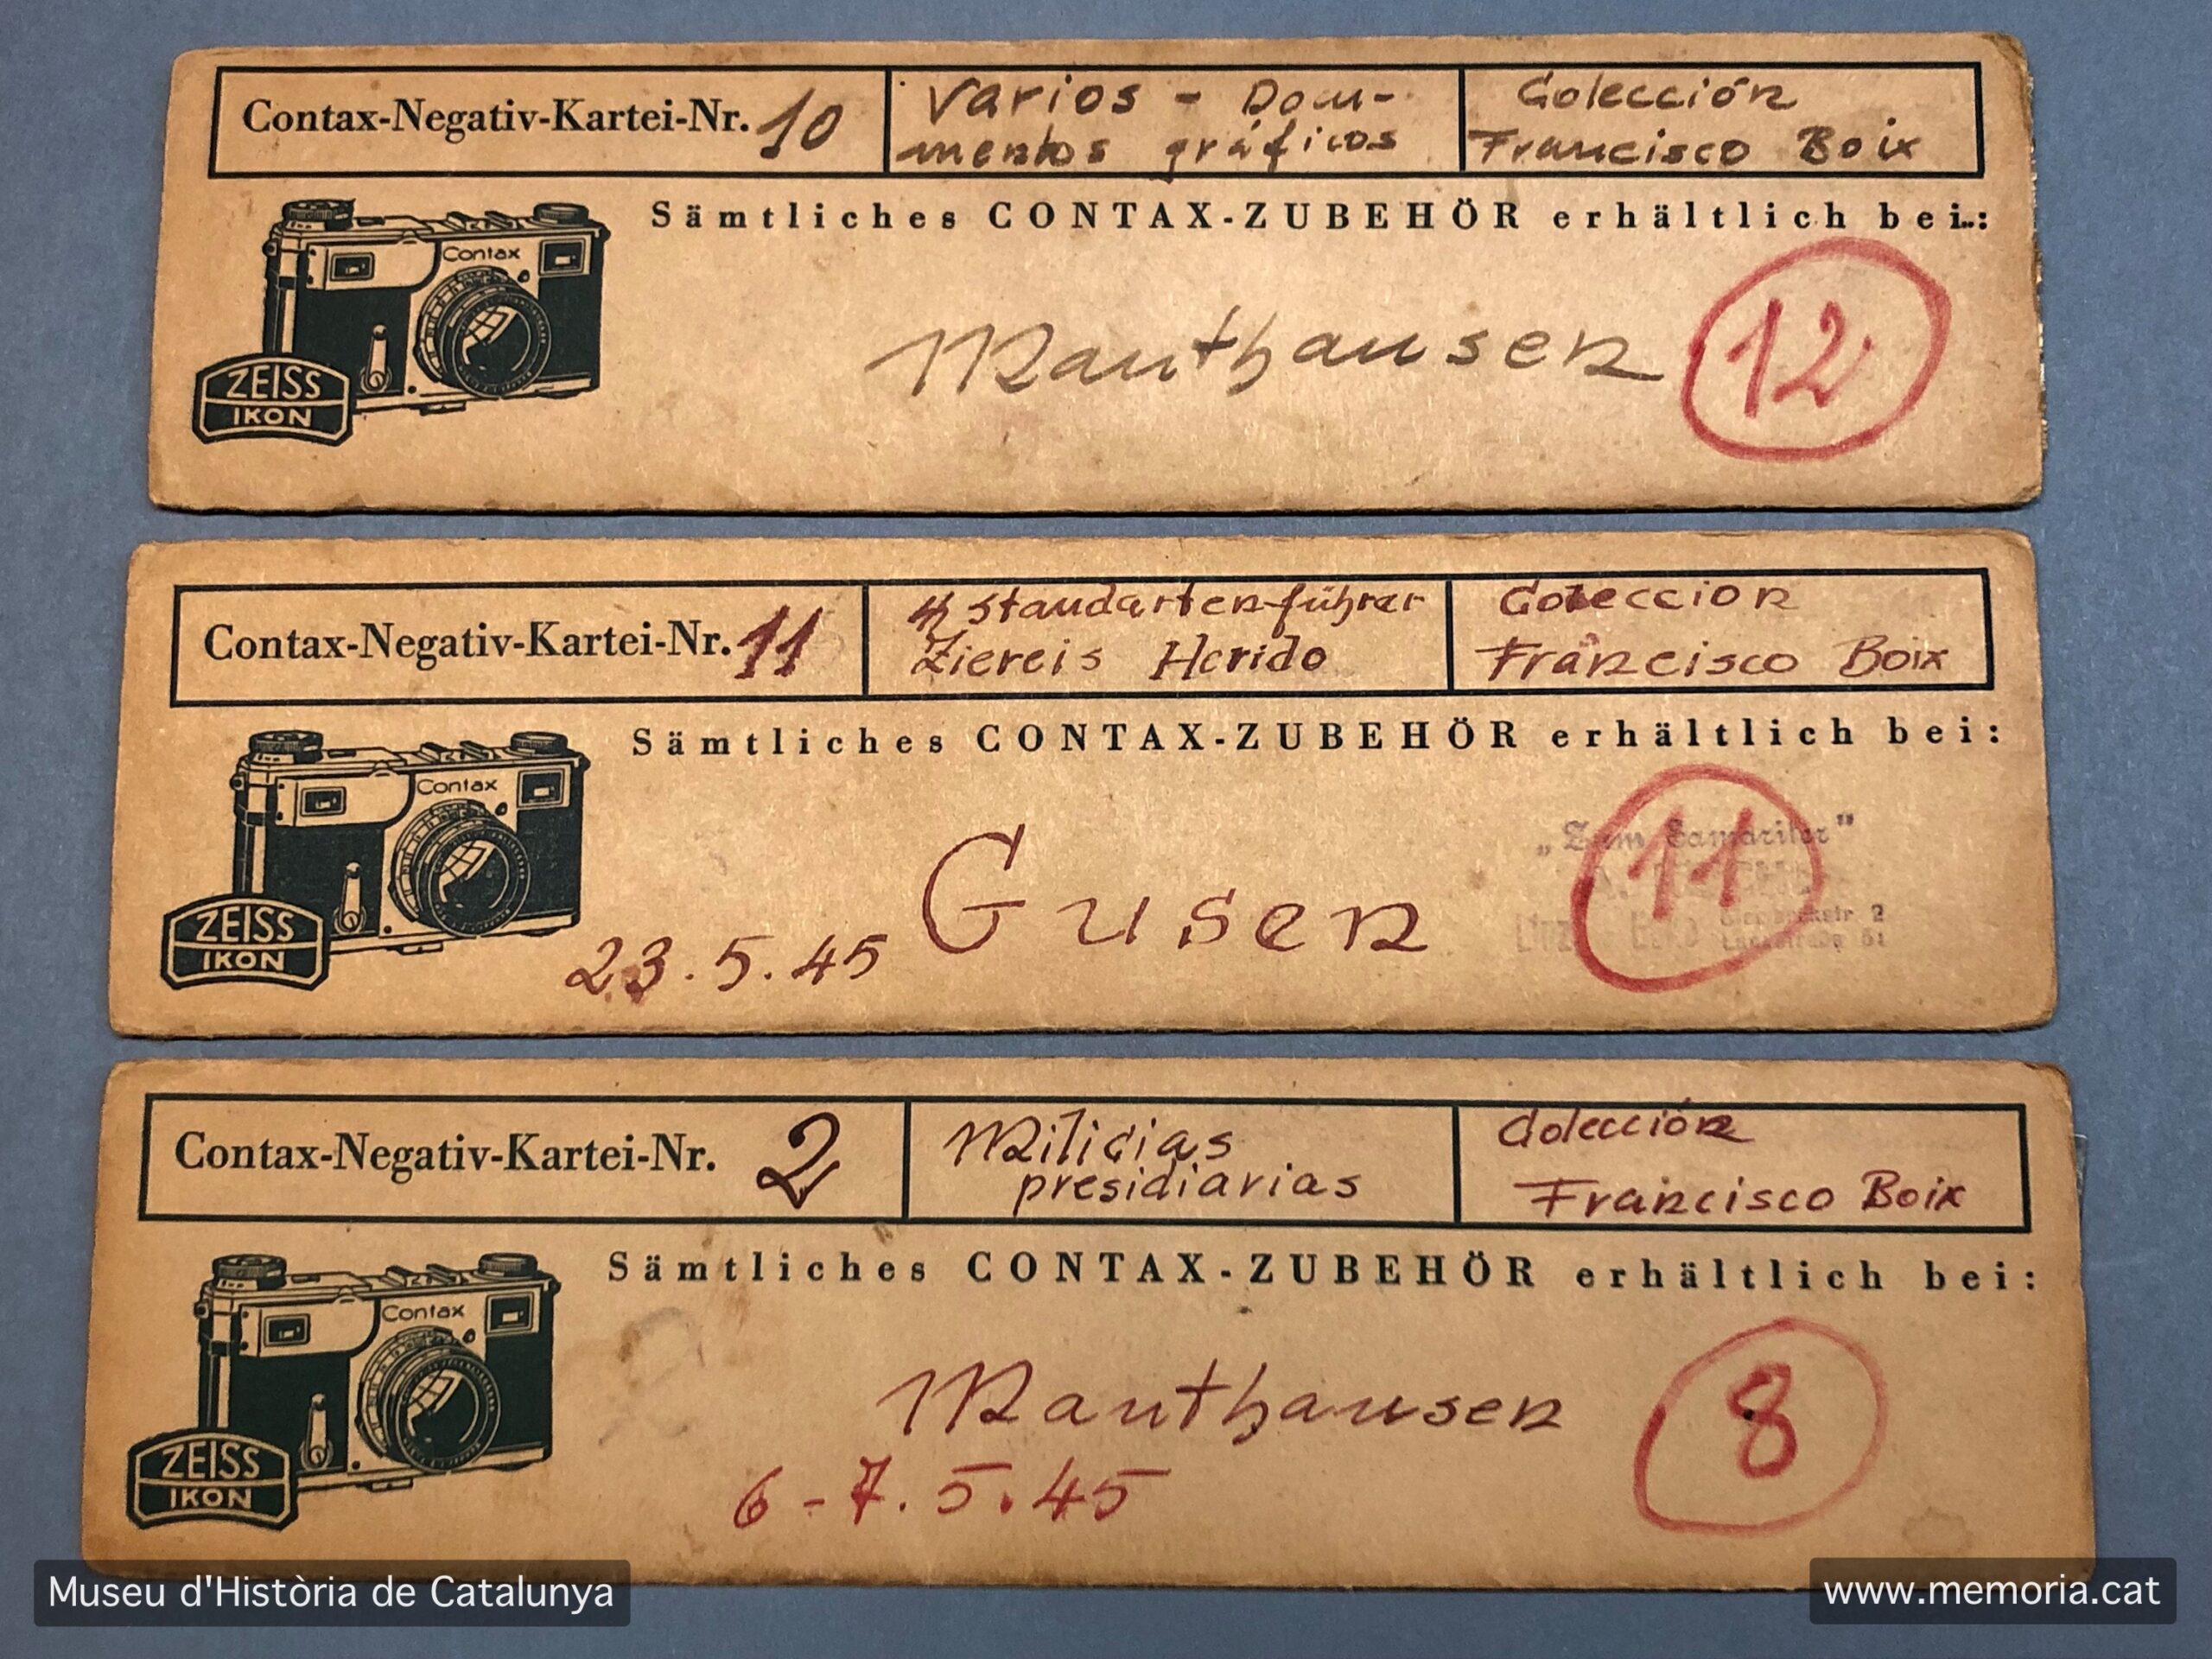 Contax-Negativ-Kartei-Nr. 10
Varios - Docu-
mentos gráficos
Colección
Francisco Boix
Sämtliches CONTAX-ZUBEHÖR erhältlich bei:
Contax
ZEISS
IKON
Mauthausen
12
Contax-Negativ-Kartei-Nr. 11
Standartenführer
Ziereis Herido
Coleccion
Francisco Boix
Sämtliches CONTAX-ZUBEHÖR erhältlich bei:
Contax
ZEISS
IKON
Gusen
23.5.45
11
„Zum Samariter"
Linz
Contax-Negativ-Kartei-Nr. 2
Milicias
presidiarias
Colección
Francisco Boix
Sämtliches CONTAX-ZUBEHÖR erhältlich bei:
Contax
ZEISS
IKON
Mauthausen
8
6-7.5.45
Museu d'Història de Catalunya
www.memoria.cat